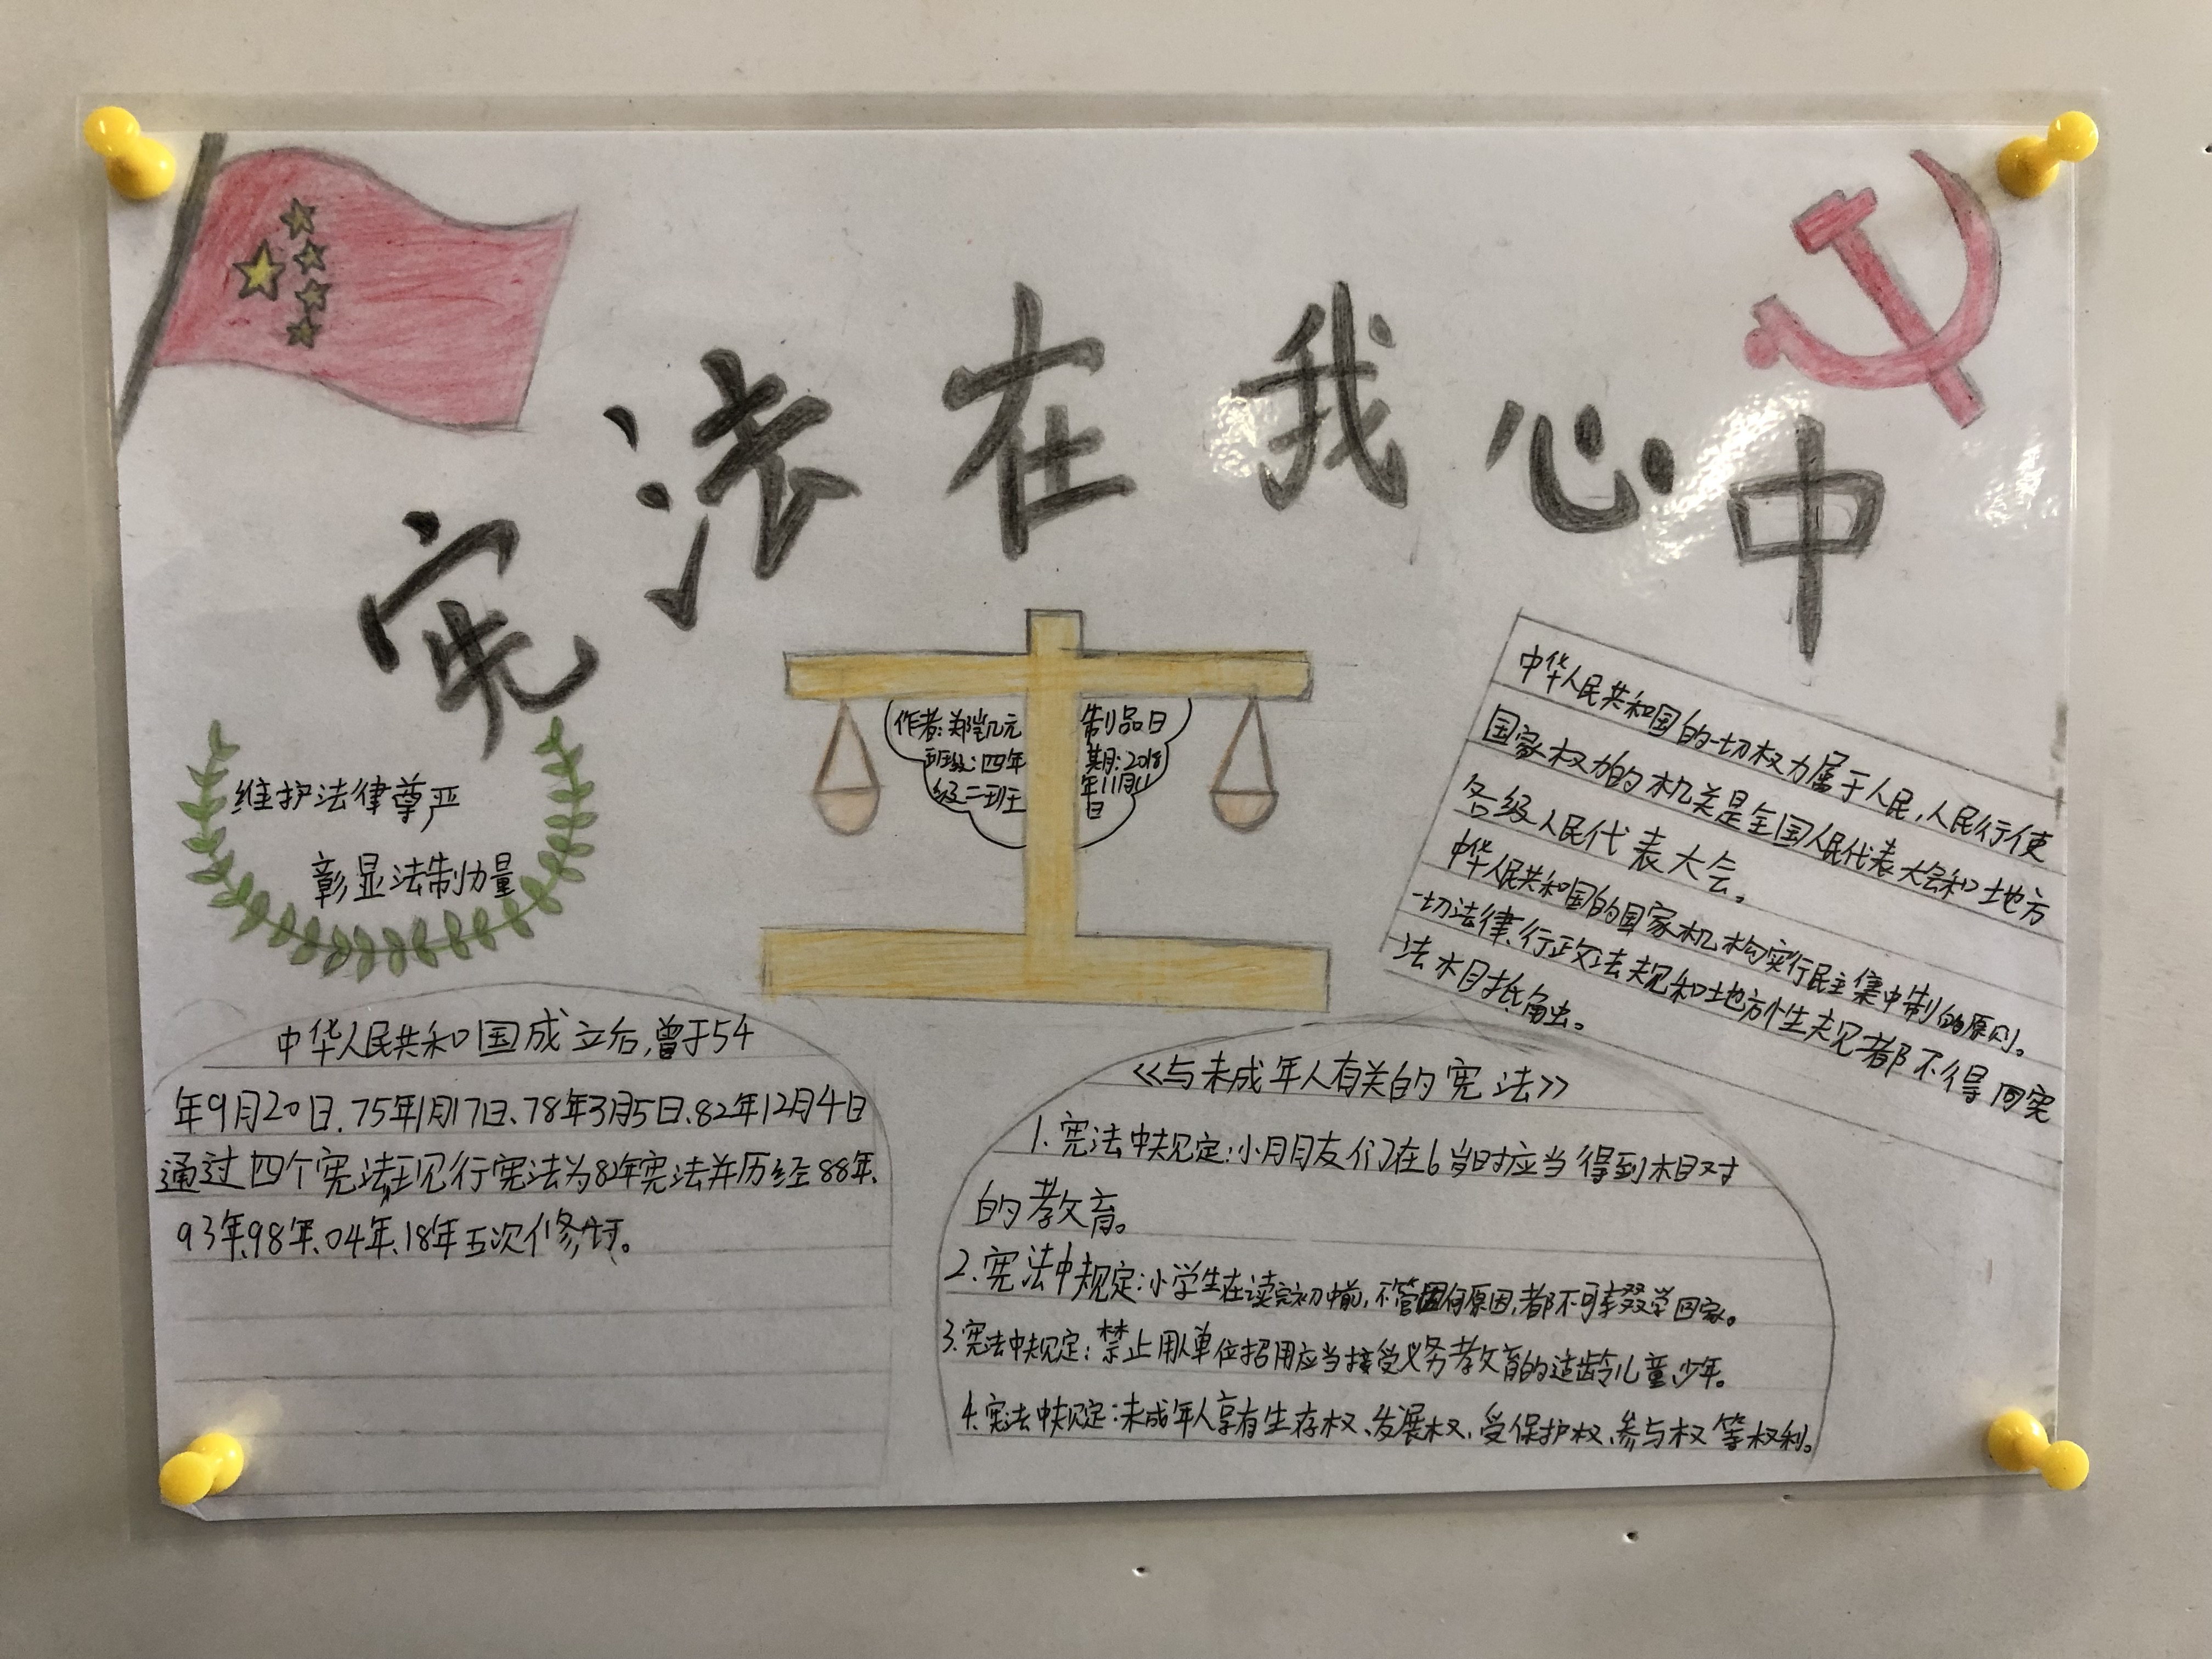 宪法在我心中
维护法律尊严
彰显法制力量
作者:郑凯元
班级:四年
级二班
制品日
期:2018
年11月11
日
中华人民共和国的一切权力属于人民,人民行使
国家权力的机关是全国人民代表大会和地方
各级人民代表大会。
中华人民共和国的国家机构实行民主集中制的原则。
一切法律、行政法规和地方性法规都不得同宪
法相抵触。
中华人民共和国成立后,曾于54
年9月20日、75年1月17日、78年3月5日、82年12月4日
通过四个宪法,现行宪法为82年宪法并历经88年、
93年、98年、04年、18年五次修订。
《与未成年人有关的宪法》
1.宪法中规定:小朋友们在6岁时应当得到相对
的教育。
2.宪法中规定:小学生在读完初中前,不管因何原因,都不可辍学回家。
3.宪法中规定:禁止用人单位招用应当接受义务教育的适龄儿童,少年。
4.宪法中规定:未成年人享有生存权、发展权,受保护权、参与权等权利。